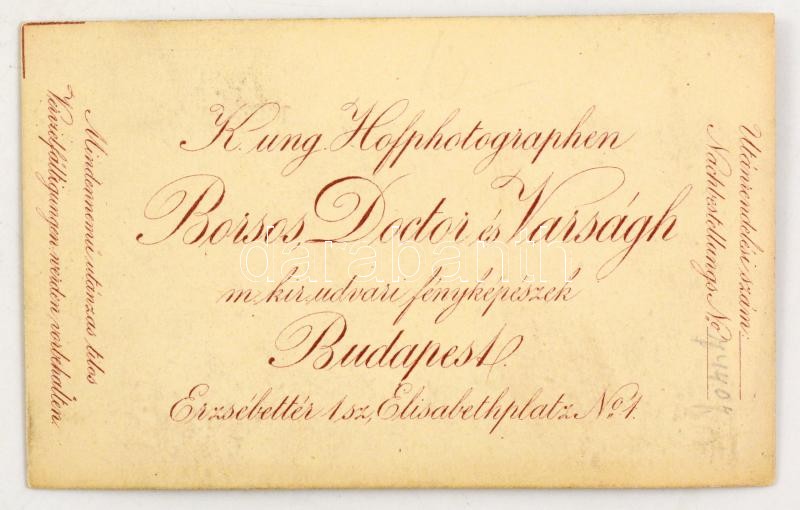 K. ung. Hofphotographen
Borsos, Doctor és Varságh
m. kir. udvari fényképészek
Budapest.
Erzsébettér 1 sz, Elisabethplatz No. 1.
Mindennemű utánzás tilos
Vervielfältigungen werden vorbehalten.
Utánrendelési szám:
Nachbestellungs No.
darabanth